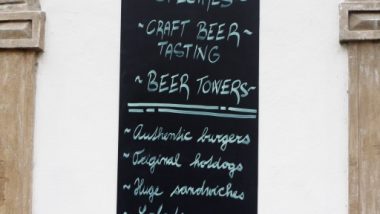 ~ CRAFT BEER ~
TASTING
~ BEER TOWERS ~
~ Authentic burgers
~ Original hotdogs
~ Huge sandwiches